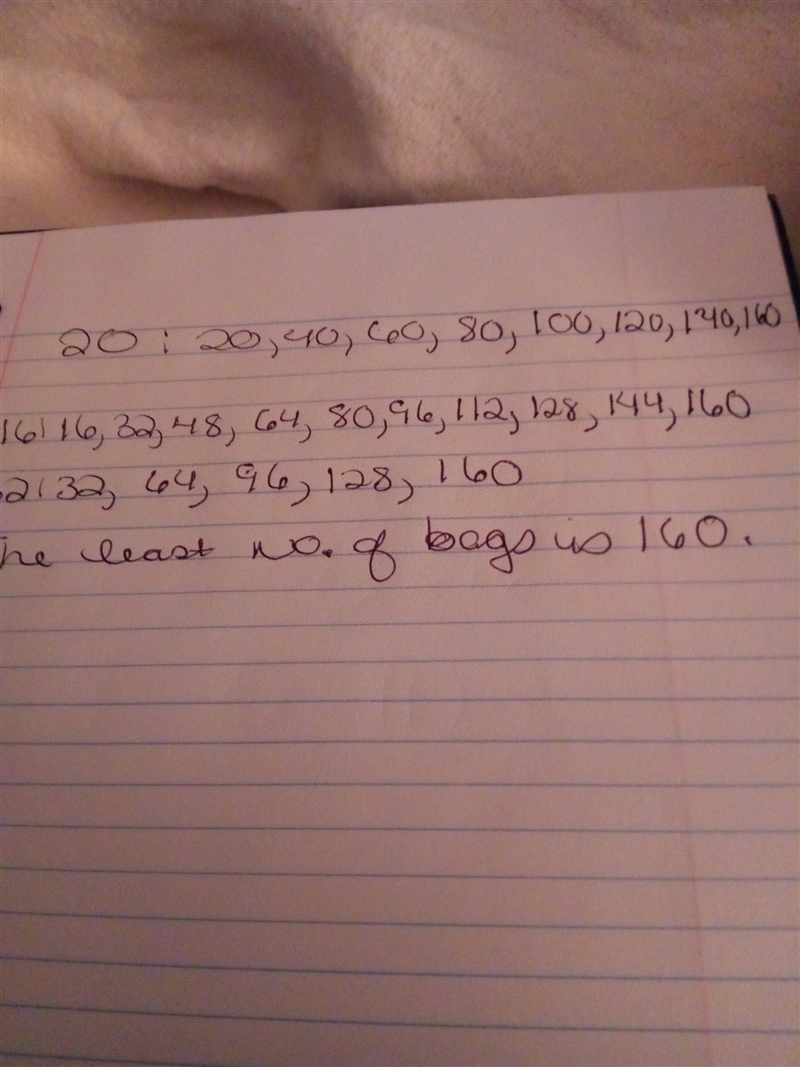 20 : 20,40, 60, 80, 100, 120, 140, 160
16: 16, 32, 48, 64, 80, 96, 112, 128, 144, 160
2: 32, 64, 96, 128, 160
he least no. of bags is 160.